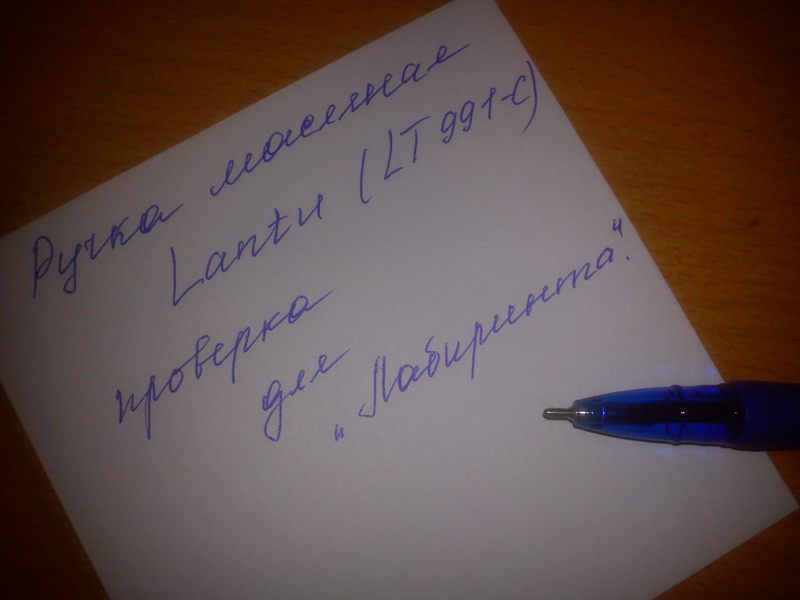 Ручка масляная
Lantu (LT 991-C)
проверка
для
"Лабиринта".